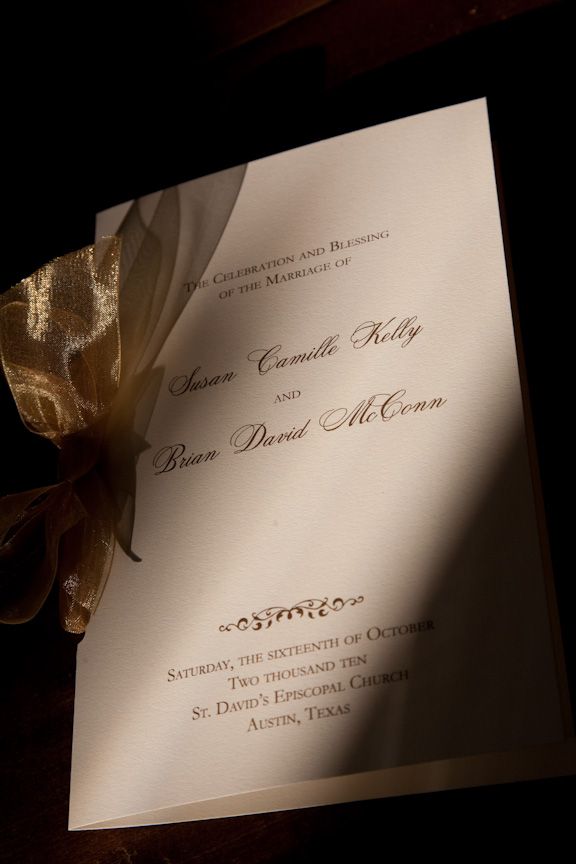 The Celebration and Blessing
of the Marriage of
Susan Camille Kelly
and
Brian David McConn
Saturday, the sixteenth of October
Two thousand ten
St. David's Episcopal Church
Austin, Texas